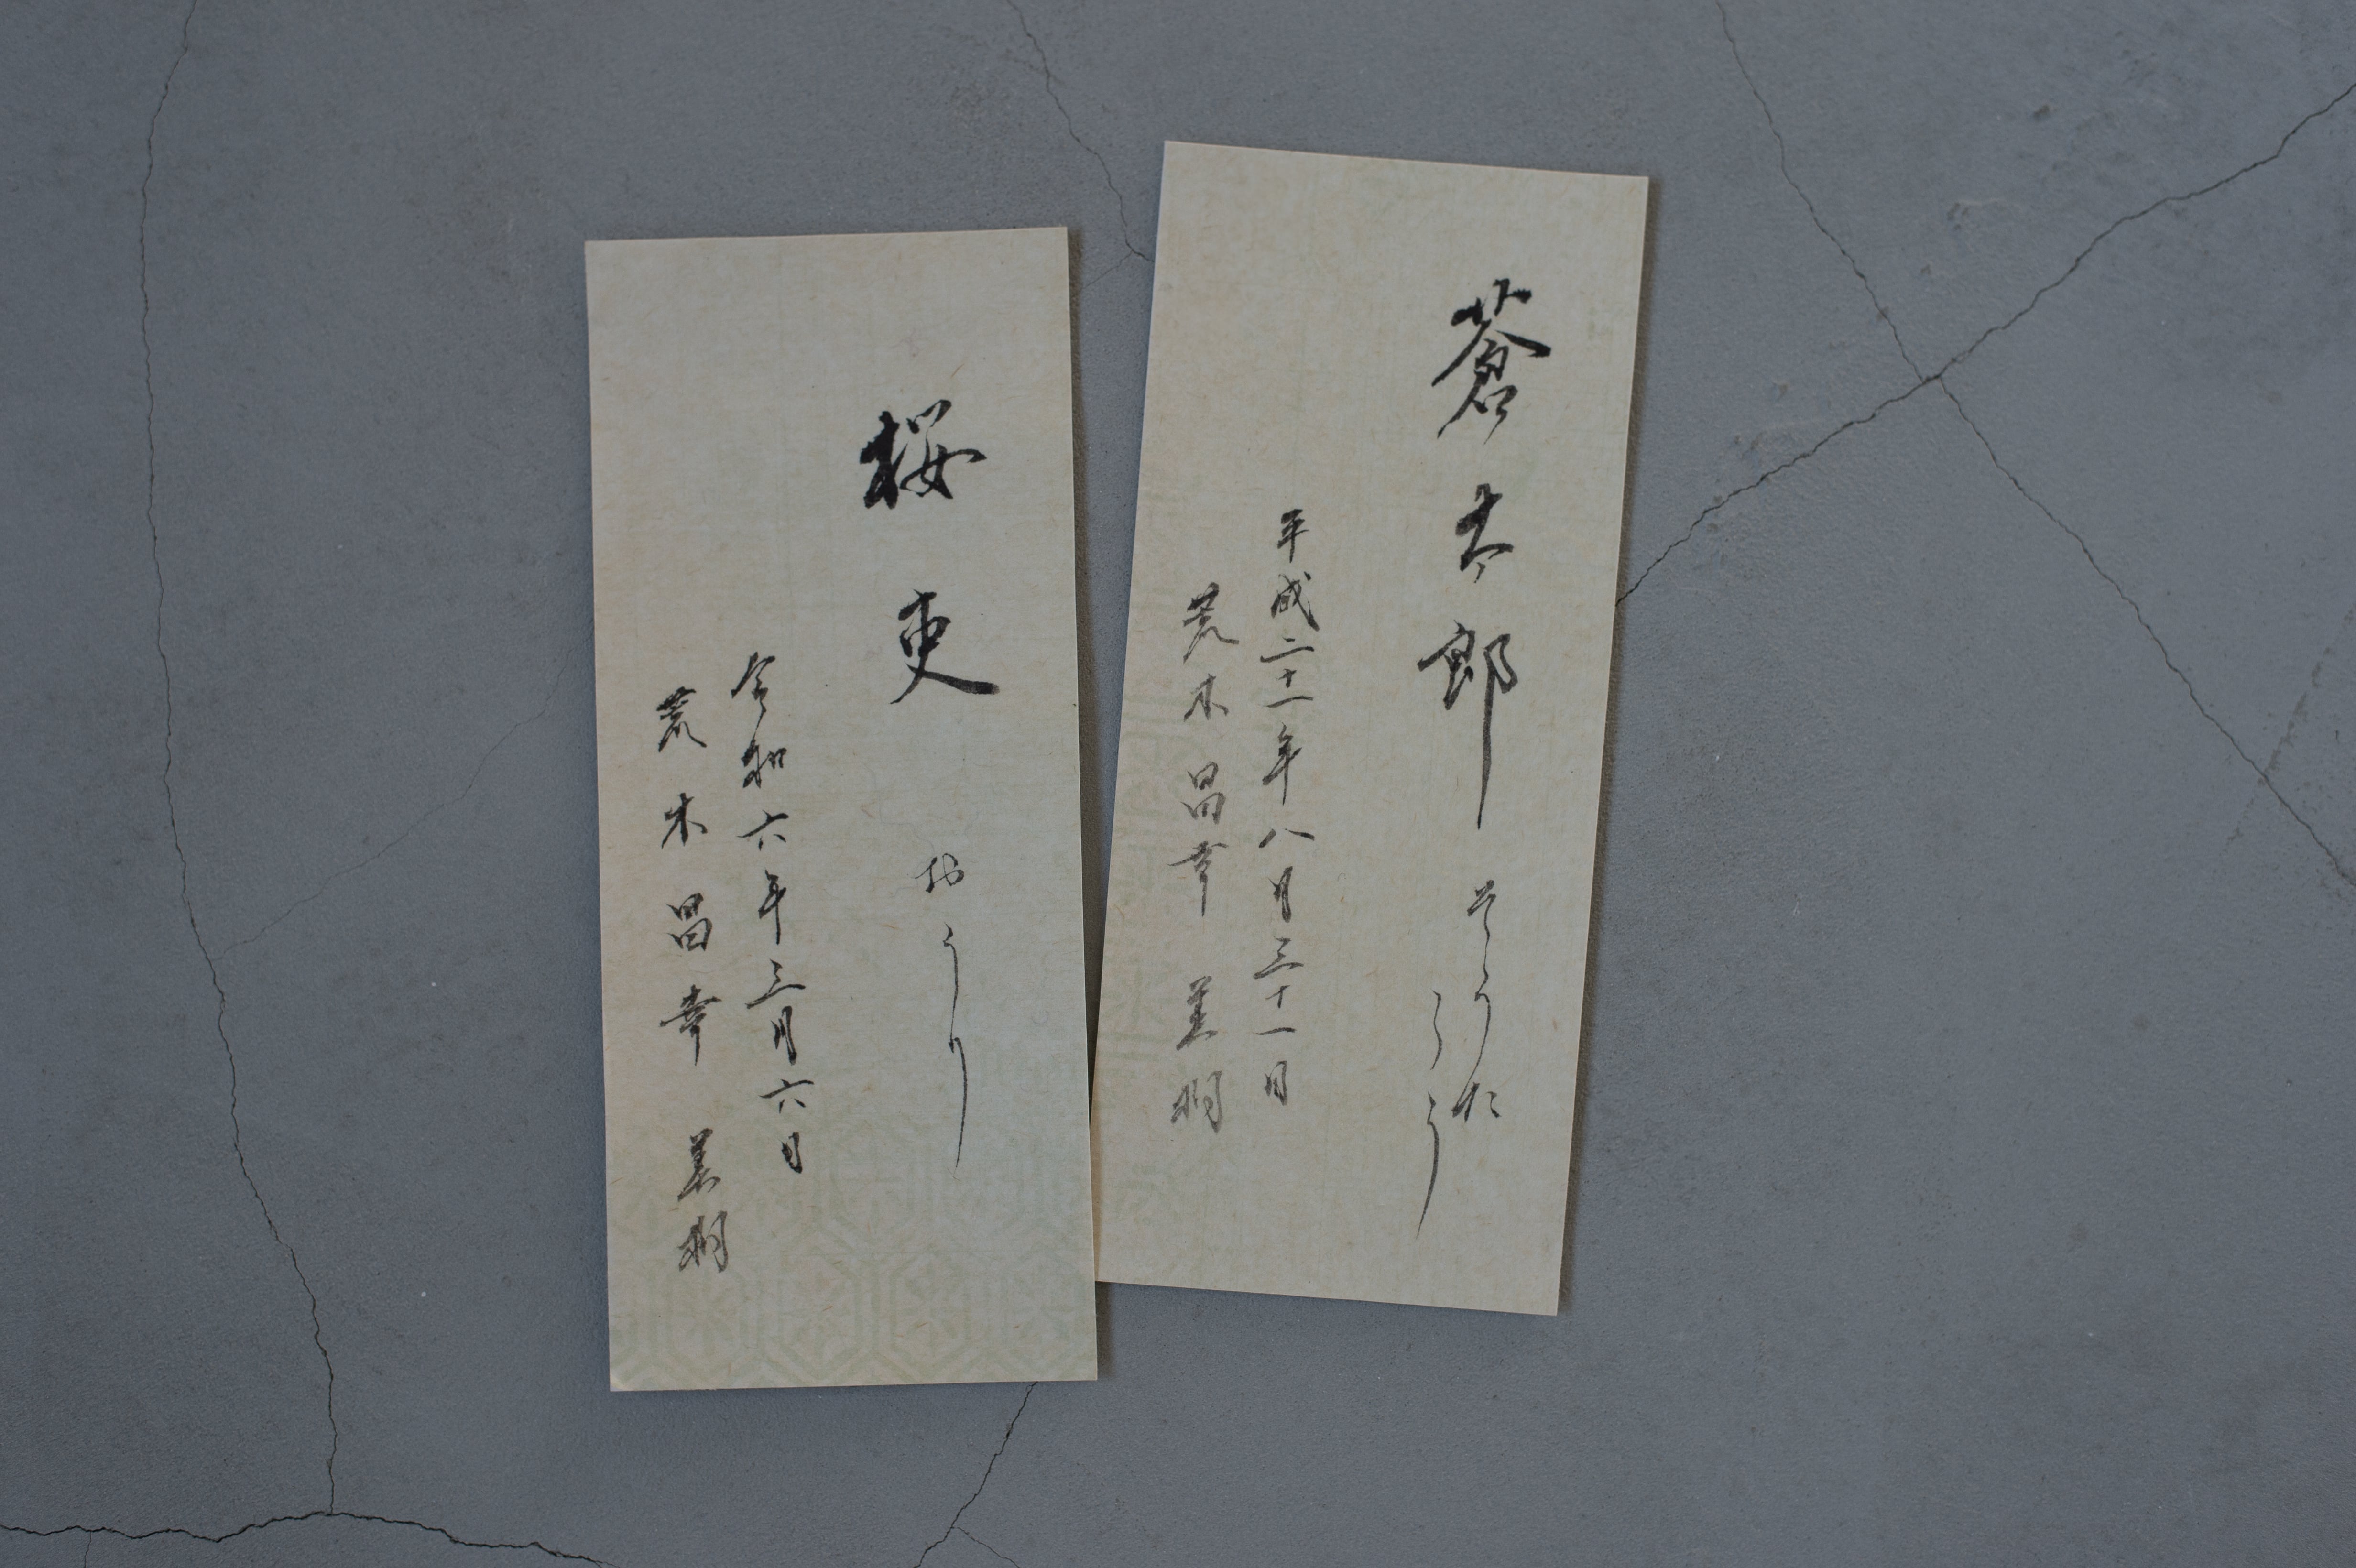 蒼太郎 そうた
ろう
平成二十一年八月三十一日
荒木昌幸
桜吏 おうり
令和六年三月六日
荒木昌幸